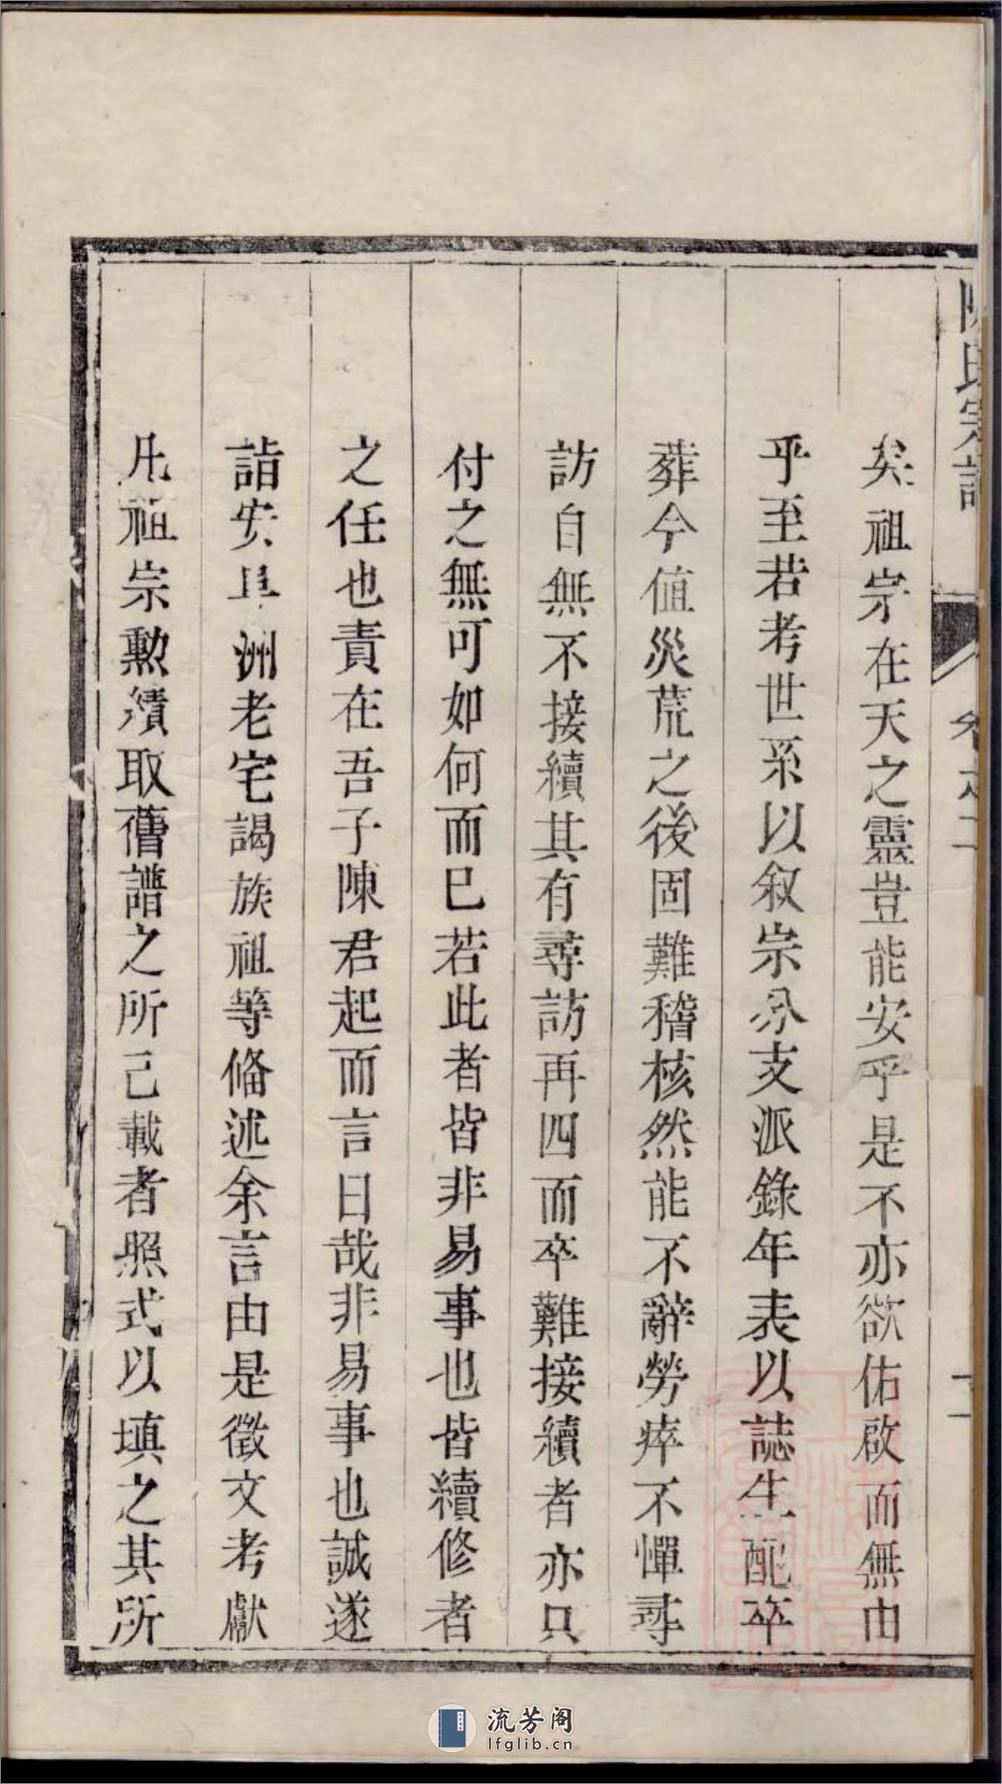 陳氏宗譜 卷之二
矣祖宗在天之靈豈能安乎是不亦欲佑啟而無由
乎至若考世系以叙宗分支派錄年表以誌生配卒
葬今值災荒之後固難稽核然能不辭勞瘁不憚尋
訪自無不接續其有尋訪再四而卒難接續者亦只
付之無可如何而已若此者皆非易事也皆續修者
之任也責在吾子陳君起而言曰哉非易事也誠遂
詣安阜洲老宅謁族祖等俻述余言由是徵文考獻
凡祖宗勲績取舊譜之所已載者照式以填之其所
流芳阁
lfglib.cn